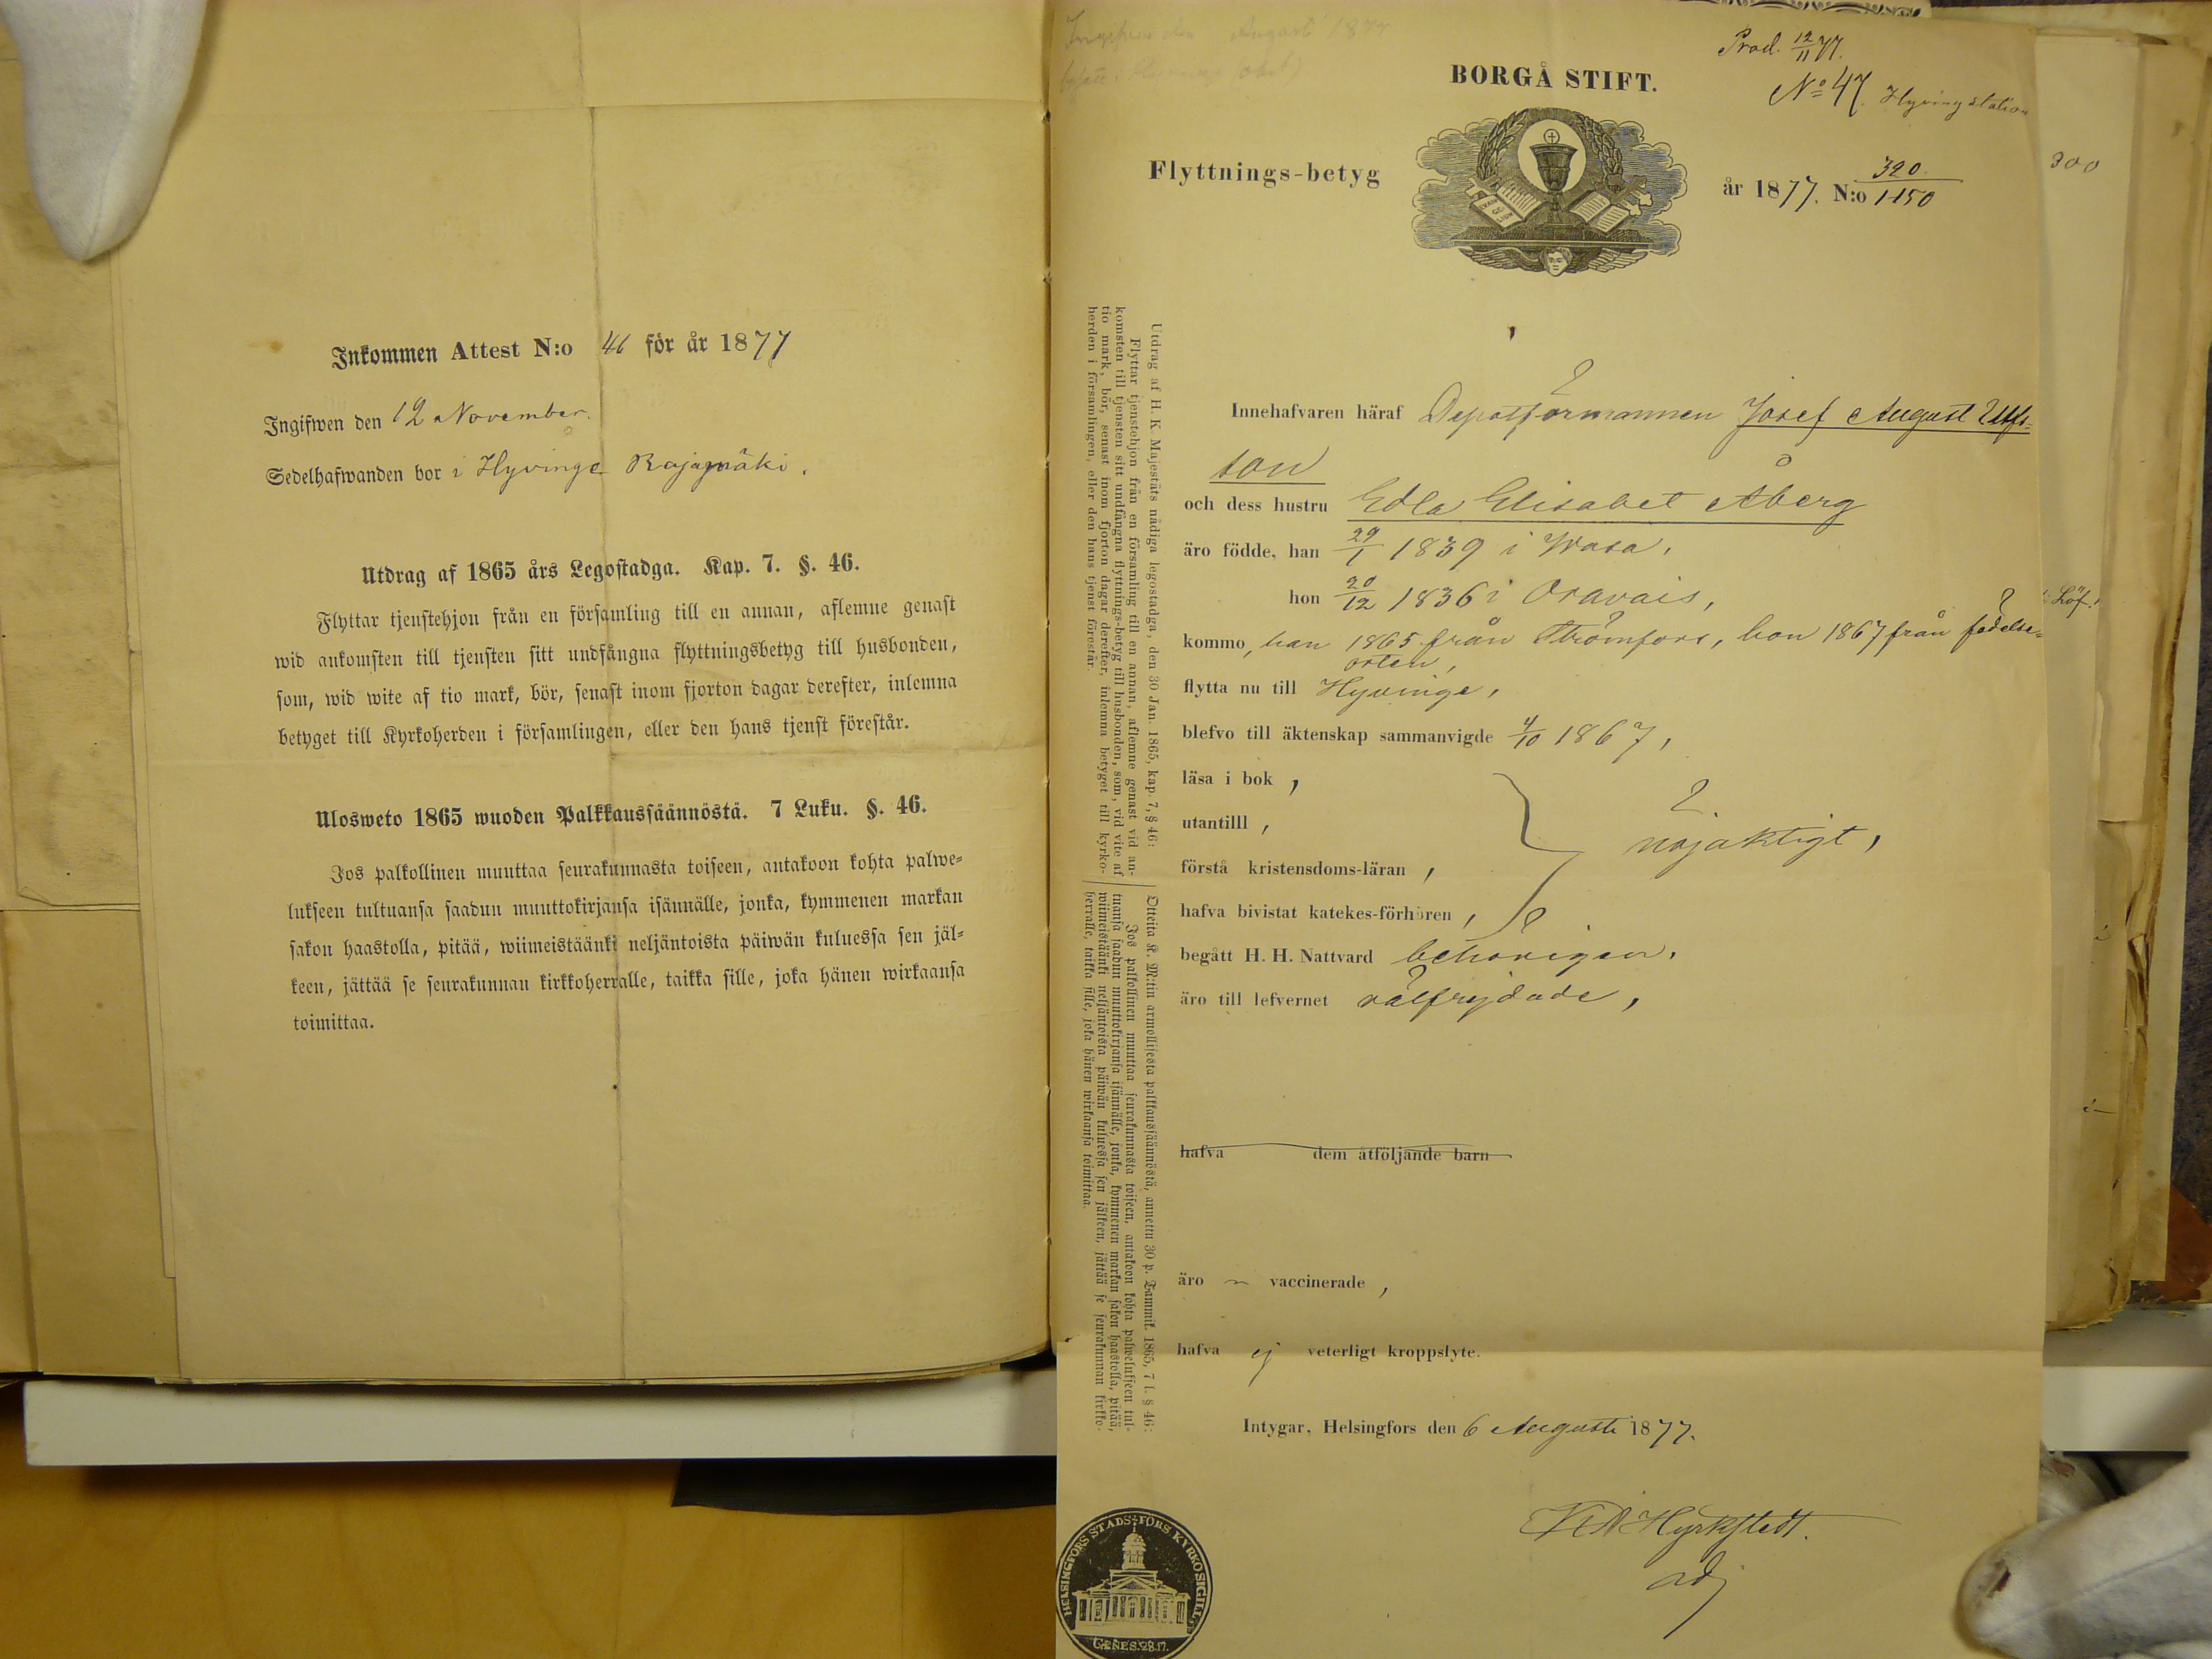 Inkommen Attest N:o 46 för år 1877
Ingifwen den 12 November.
Sedelhafwanden bor i Hyvinge Rajamäki.
Utdrag af 1865 års Legostadga. Kap. 7. §. 46.
Flyttar tjenstehjon från en församling till en annan, aflemne genast
wid ankomsten till tjensten sitt undfångna flyttningsbetyg till husbonden,
som, wid wite af tio mark, bör, senast inom fjorton dagar derefter, inlemna
betyget till Kyrkoherden i församlingen, eller den hans tjenst förestår.
Ulosweto 1865 wuoden Palkkaussäännöstä. 7 Luku. §. 46.
Jos palkollinen muuttaa seurakunnasta toiseen, antakoon kohta palwe=
lukseen tultuansa saadun muuttokirjansa isännälle, jonka, kymmenen markan
sakon haastolla, pitää, wiimeistäänki neljäntoista päiwän kuluessa sen jäl=
keen, jättää se seurakunnan kirkkoherralle, taikka sille, joka hänen wirkaansa
toimittaa.
August 1877
Prod. 12/11 77.
No 47. Hyving station
BORGÅ STIFT.
Flyttnings-betyg
år 1877. N:o 320./1150
300
Utdrag af H. K. Majestäts nådiga legostadga, den 30 Jan. 1865, kap. 7, § 46:
Flyttar tjenstehjon från en församling till en annan, aflemne genast vid an-
komsten till tjensten sitt undfångna flyttnings-betyg till husbonden, som, vid vite af
tio mark, bör, senast inom fjorton dagar derefter, inlemna betyget till kyrko-
herden i församlingen, eller den hans tjenst förestår.
Otteita K. M:tin armollisesta palkkaussäännöstä, annettu 30 p. Tammik. 1865, 7 l. § 46:
Jos palkollinen muuttaa seurakunnasta toiseen, antakoon kohta palwelukseen tul-
tuansa saadun muuttokirjansa isännälle, jonka, kymmenen markan sakon haastolla, pitää,
wiimeistäänki neljäntoista päiwän kuluessa sen jälkeen, jättää se seurakunnan kirkko-
herralle, taikka sille, joka hänen wirkaansa toimittaa.
Innehafvaren häraf Depotförmannen Josef August Ulfs=
son
och dess hustru Edla Elisabet Åberg
äro födde, han 29/1 1839 i Wasa,
hon 20/12 1836 i Oravais,
kommo, han 1865 från Strömfors, hon 1867 från födelse=
orten,
Löf.
flytta nu till Hyvinge,
blefvo till äktenskap sammanvigde 4/10 1867,
läsa i bok,
utantilll,
förstå kristensdoms-läran,
nöjaktigt,
hafva bivistat katekes-förhören,
begått H. H. Nattvard behörigen.
äro till lefvernet välfrejdade,
hafva dem åtföljande barn
äro vaccinerade,
hafva ej veterligt kroppslyte.
Intygar, Helsingfors den 6 Augusti 1877.
Hyrkstedt.
adj
HELSINGFORS STADS FÖRS KYRKO SIGILL
GENES. 28.17.